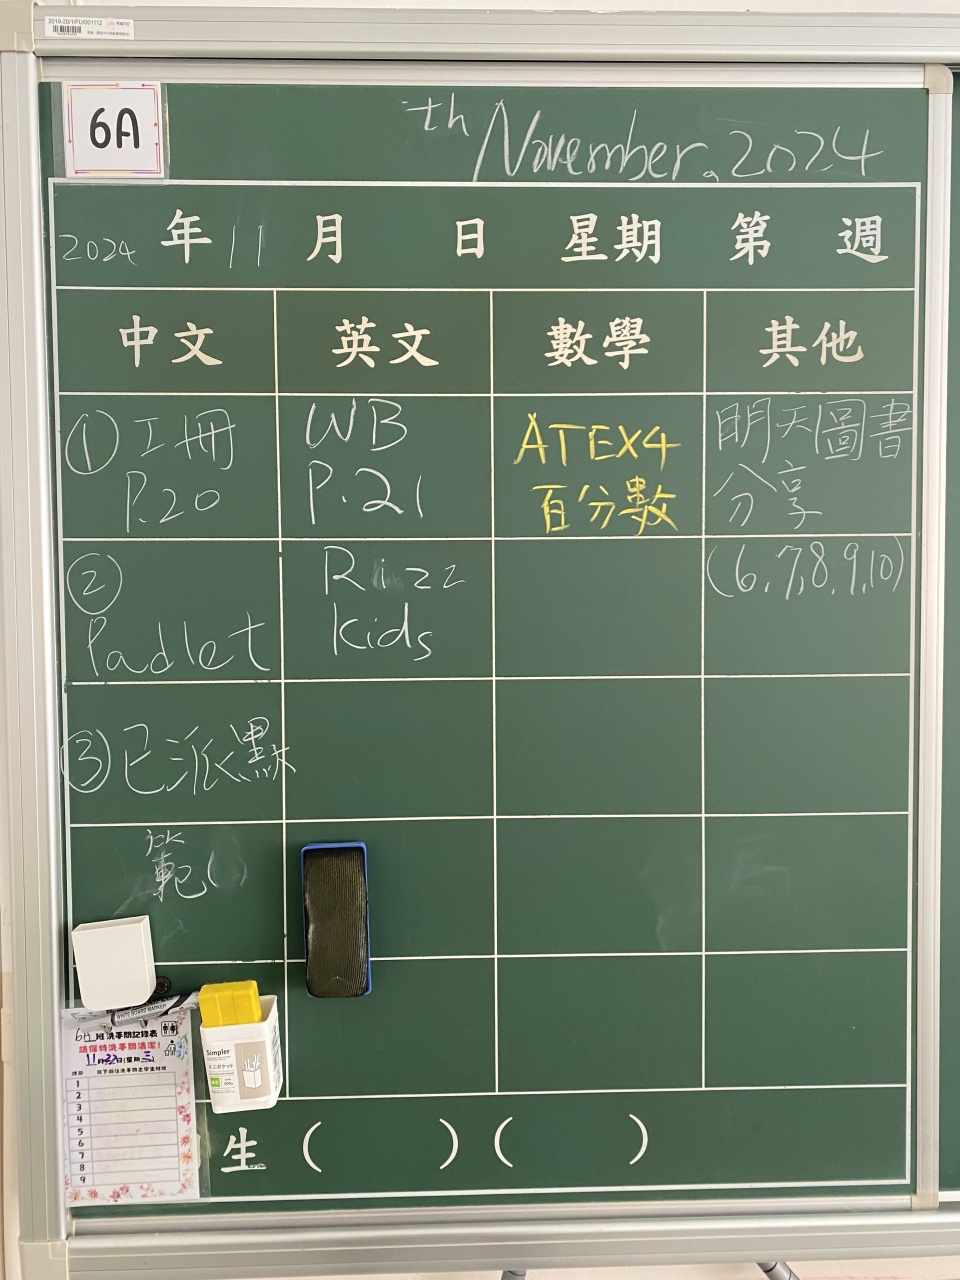 2019-20/1/FU/001112
6A
th November, 2024
2024 年 11 月 日 星期 第 週
中文 英文 數學 其他
① 工冊
P.20
WB
P.21
ATEX4
百分數
明天圖書
分享
(6,7,8,9,10)
②
Padlet
Rizz
kids
③ 已派默
範(
WHITE BOARD MARKER
6A 班洗手間記錄表
請保持洗手間清潔!
11月22日(星期三)
1
2
3
4
5
6
7
8
9
Simpler
ミニポケット
生 ( ) ( )